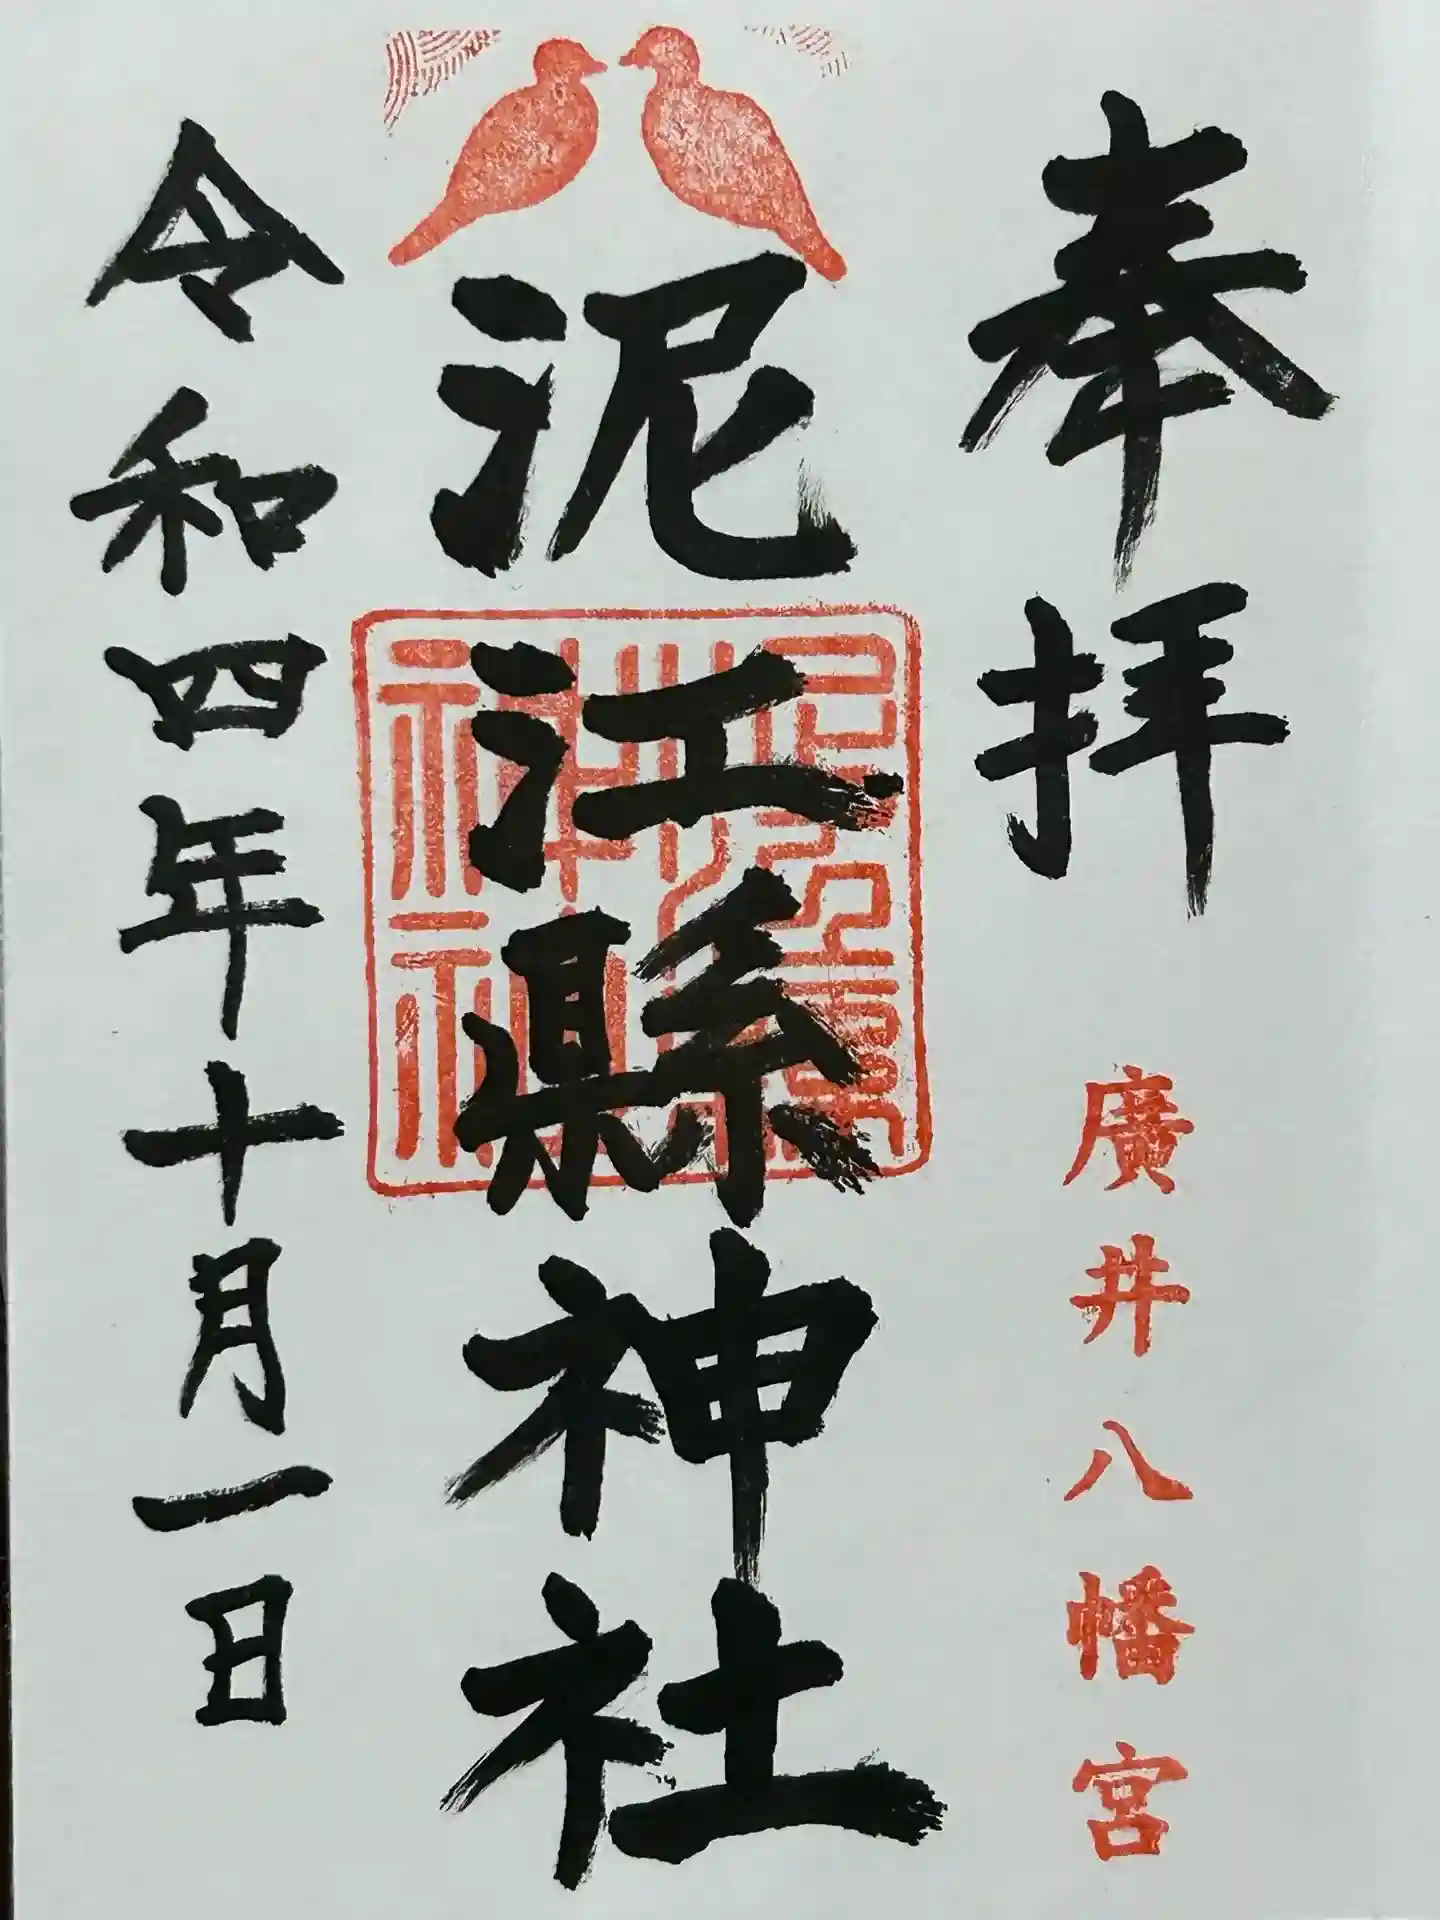 奉拝
廣井八幡宮
泥江縣神社
令和四年十月一日